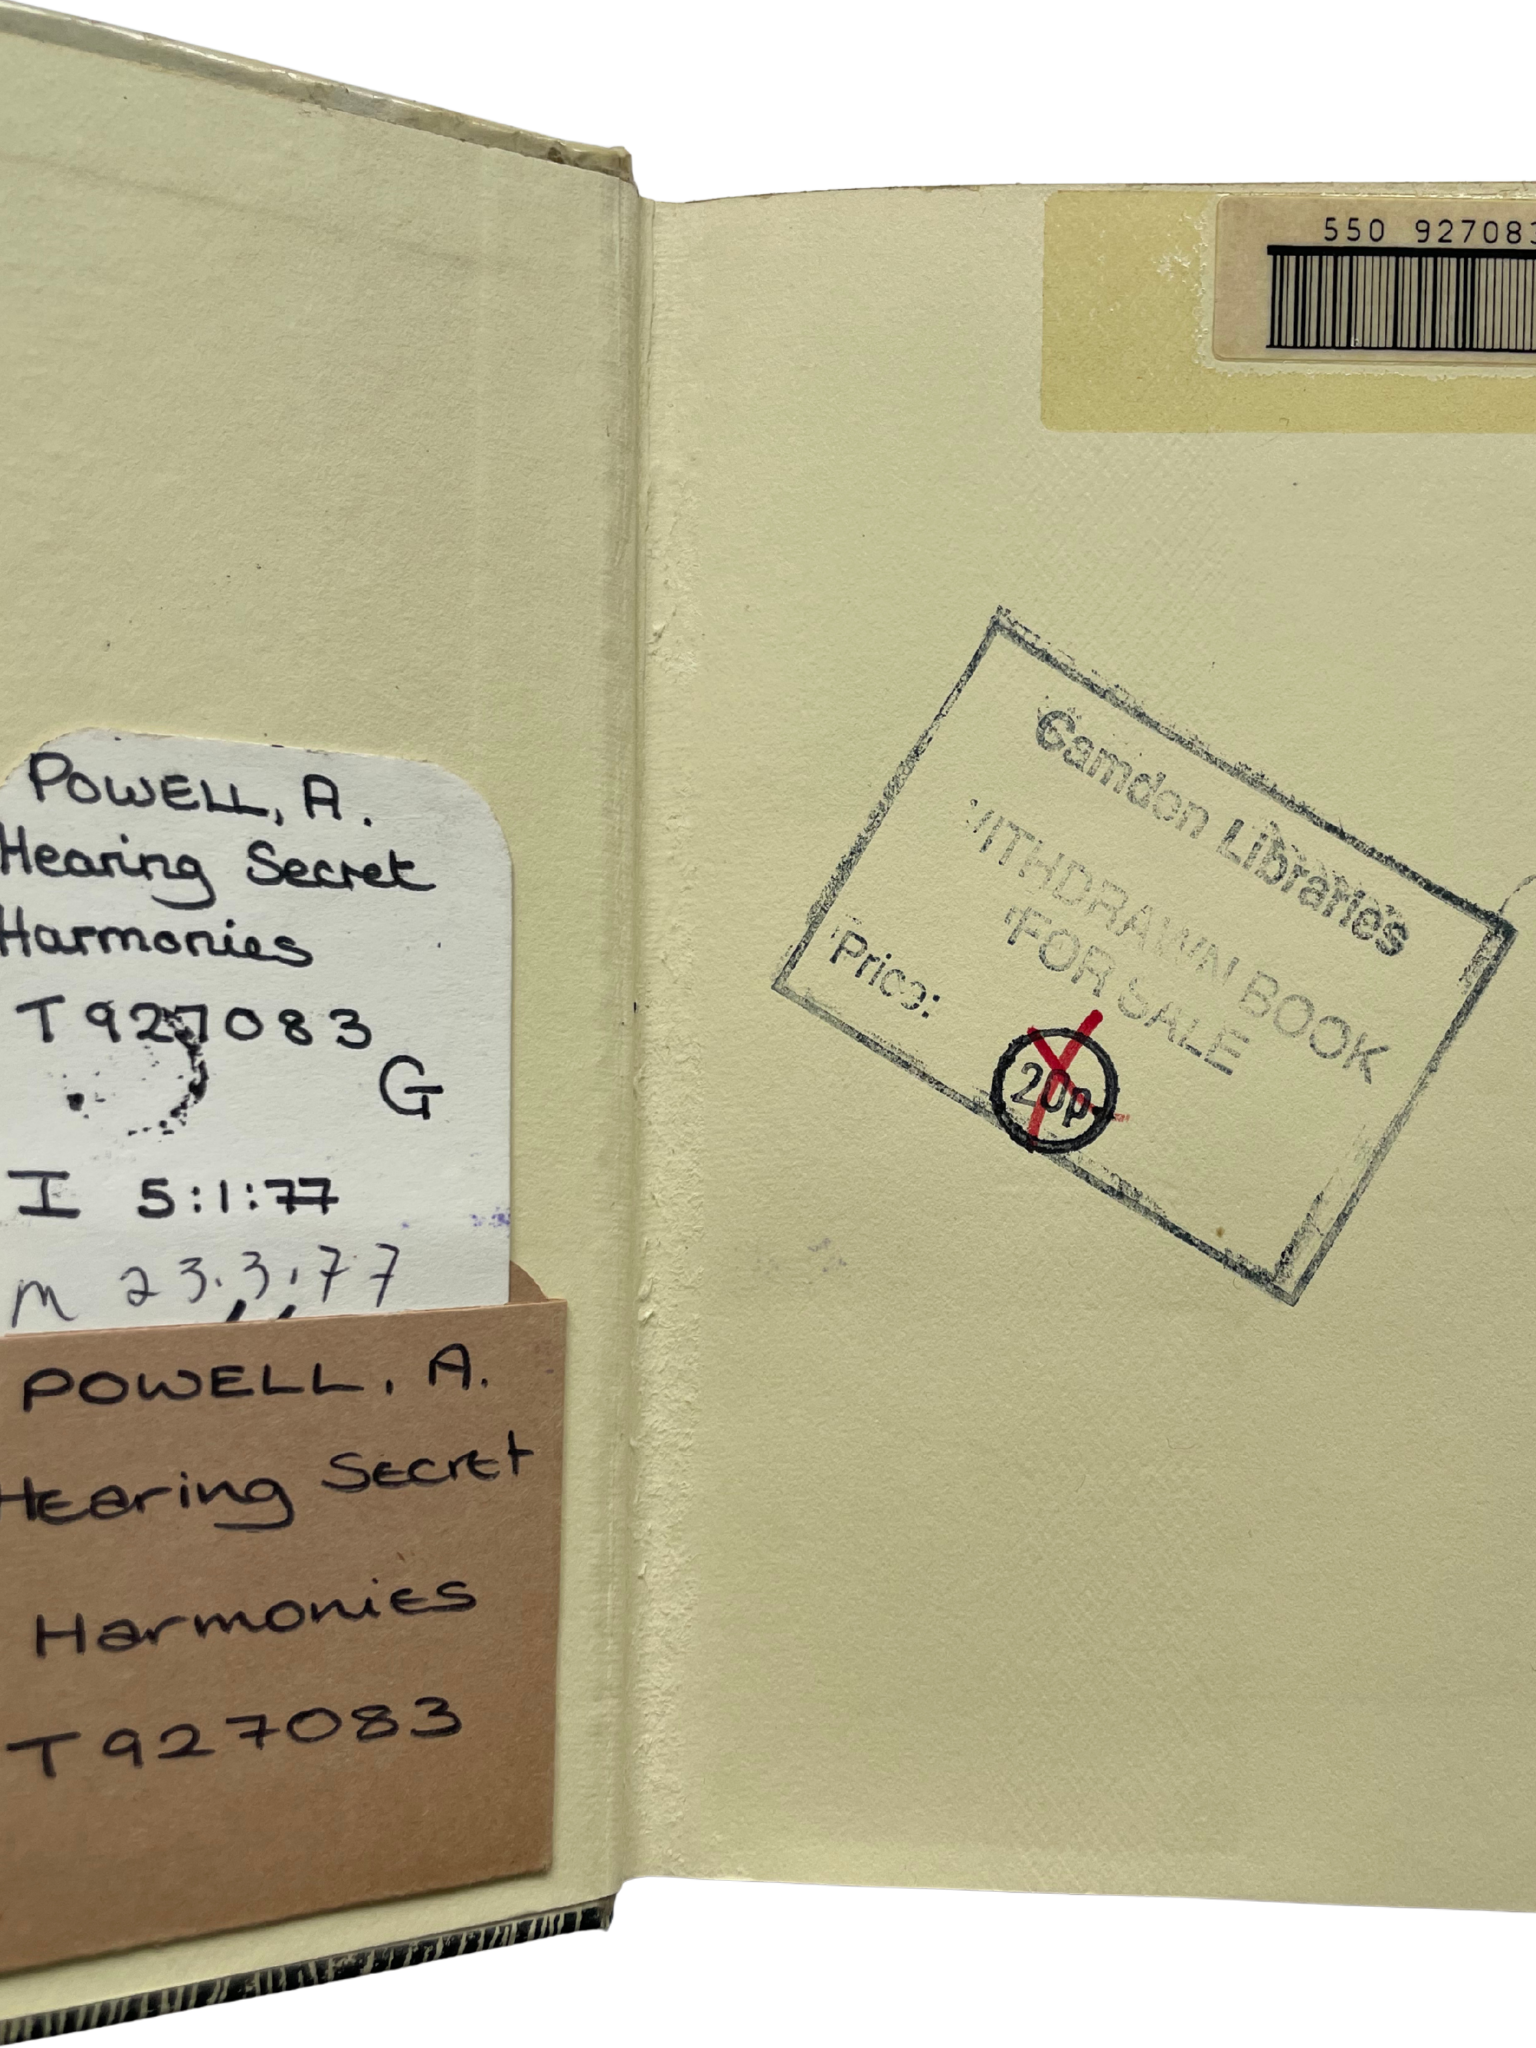 POWELL, A.
Hearing Secret
Harmonies
T 927083
G
I 5:1:77
m 23.3.77
POWELL, A.
Hearing Secret
Harmonies
T 927083
550 927083
Camden Libraries
WITHDRAWN BOOK
FOR SALE
Price:
20p